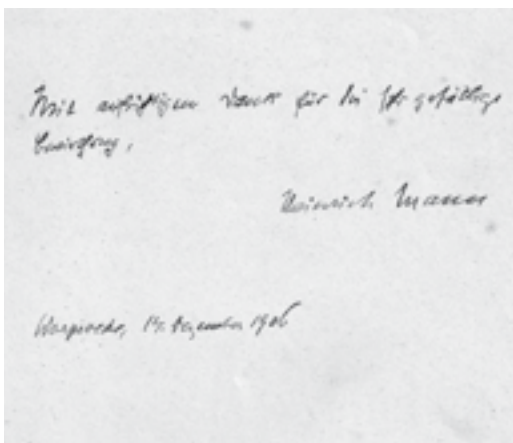 Mit aufrichtigem Dank für die sehr gefällige
Heinrich Mann
Dezember 1906